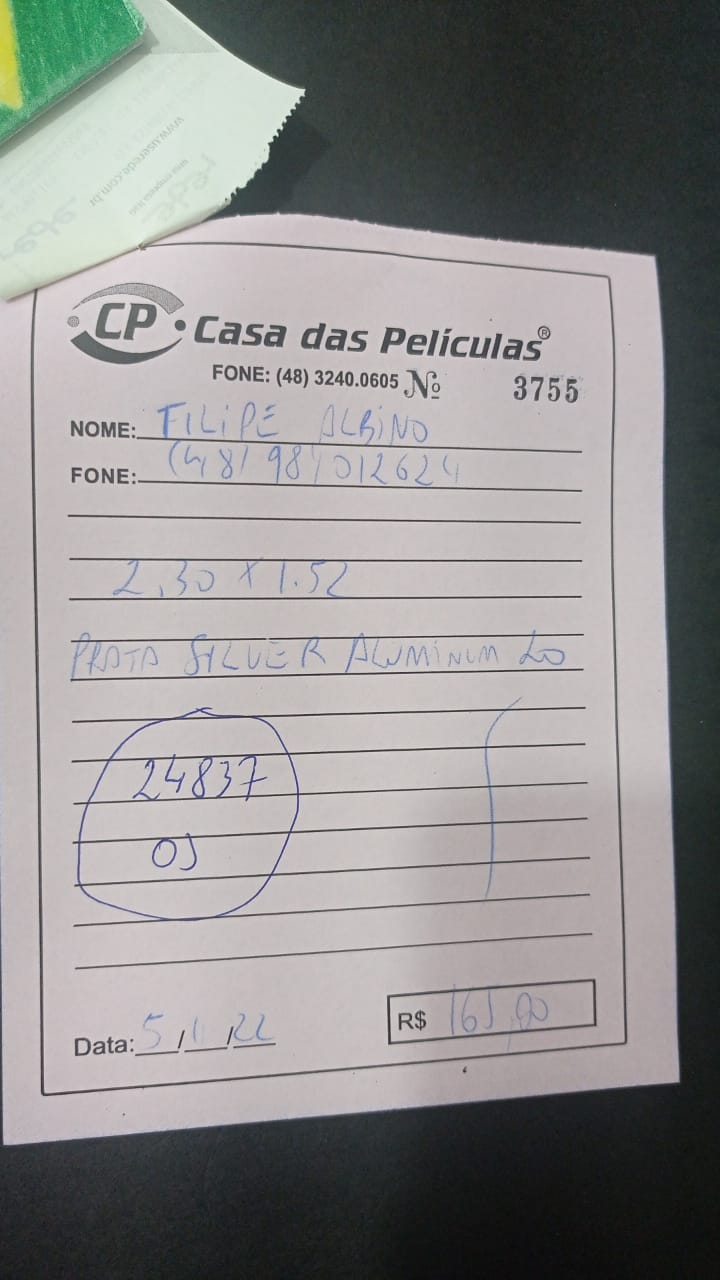 www.userede.com.br
rede
rede
CP • Casa das Películas®
FONE: (48) 3240.0605 Nº 3755
NOME: FILIPE ALBINO
FONE: (48) 984012624
2.30 x 1.52
PRATA SILVER ALUMINUM 20
24837
OS
Data: 5/1/22
R$ 165,00